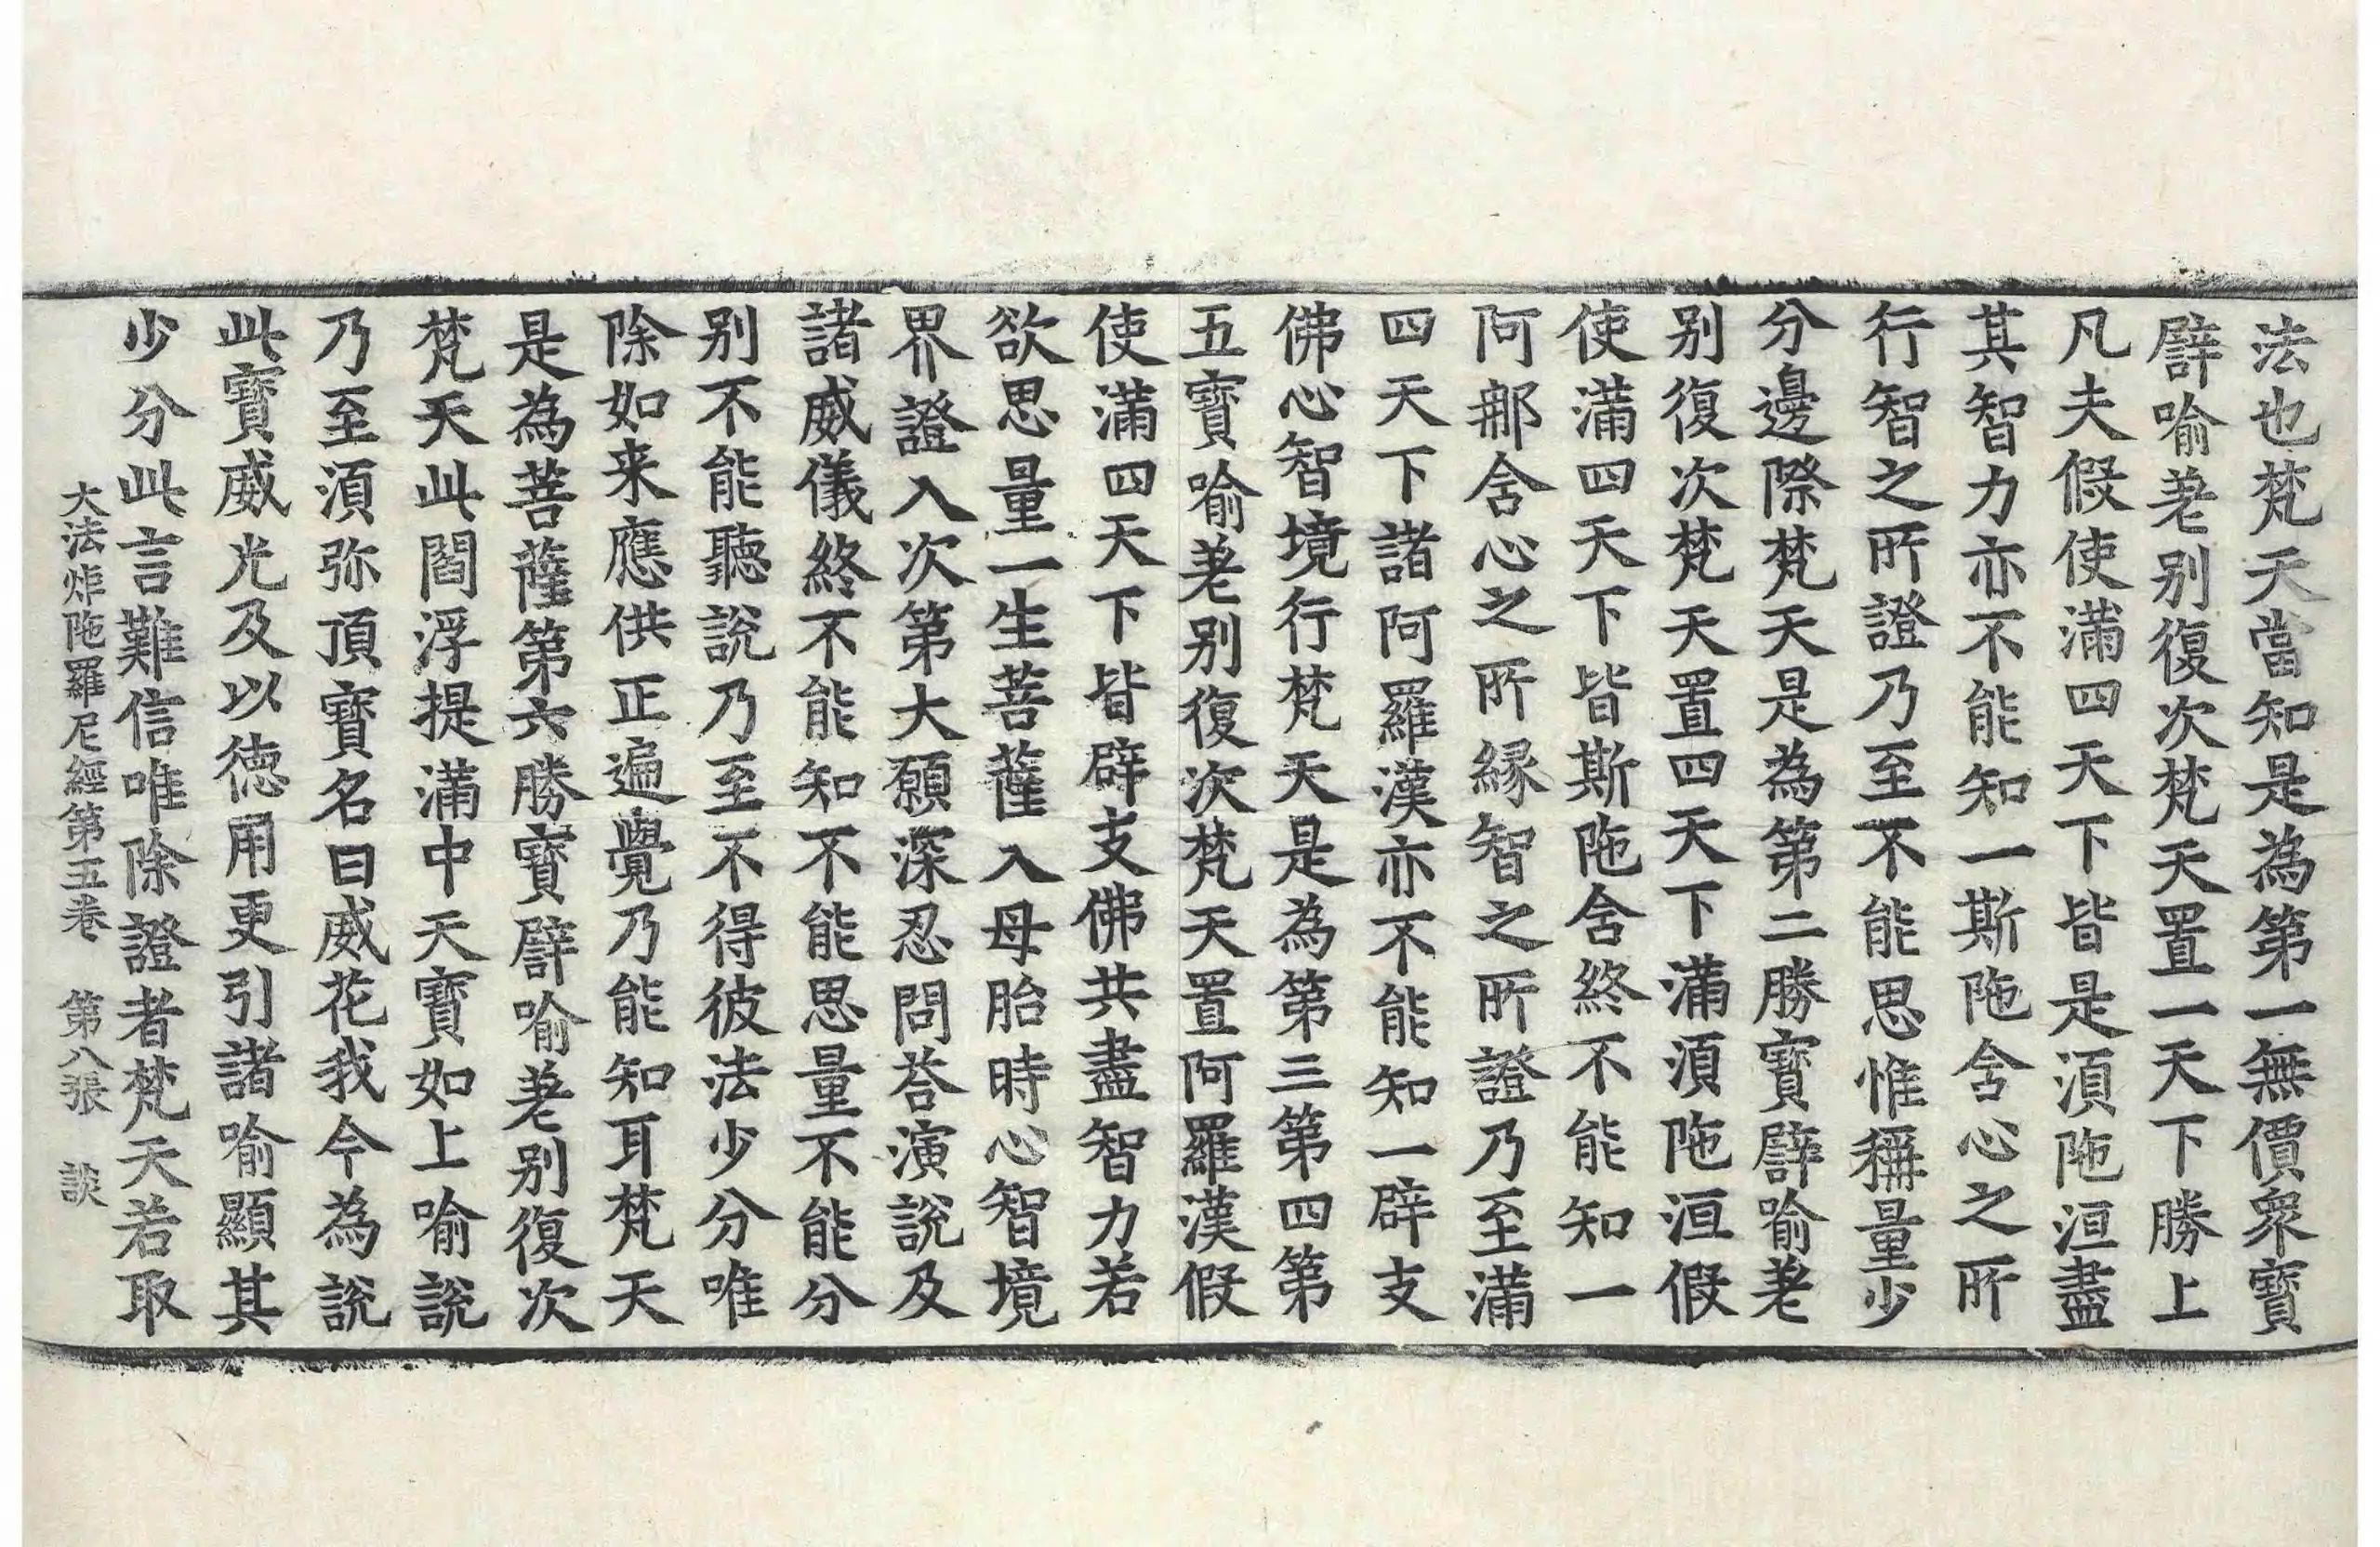 法也梵天當知是為第一無價衆寶
譬喻差别復次梵天置一天下勝上
凡夫假使滿四天下皆是湏陁洹盡
其智力亦不能知一斯陁含心之所
行智之所證乃至不能思惟稱量少
分邊際梵天是為第二勝寶譬喻差
别復次梵天置四天下滿湏陁洹假
使滿四天下皆斯陁含終不能知一
阿那含心之所縁智之所證乃至滿
四天下諸阿羅漢亦不能知一辟支
佛心智境行梵天是為第三第四第
五寶喻差别復次梵天置阿羅漢假
使滿四天下皆辟支佛共盡智力若
欲思量一生菩薩入母胎時心智境
界證入次第大願深忍問荅演說及
諸威儀終不能知不能思量不能分
别不能聽說乃至不得彼法少分唯
除如来應供正遍覺乃能知耳梵天
是為菩薩第六勝寶譬喻差别復次
梵天此閻浮提滿中天寶如上喻說
乃至湏弥頂寶名曰威花我今為說
此寶威光及以徳用更引諸喻顯其
少分此言難信唯除證者梵天若取
大法炬陁羅尼經第五卷　第八張　談